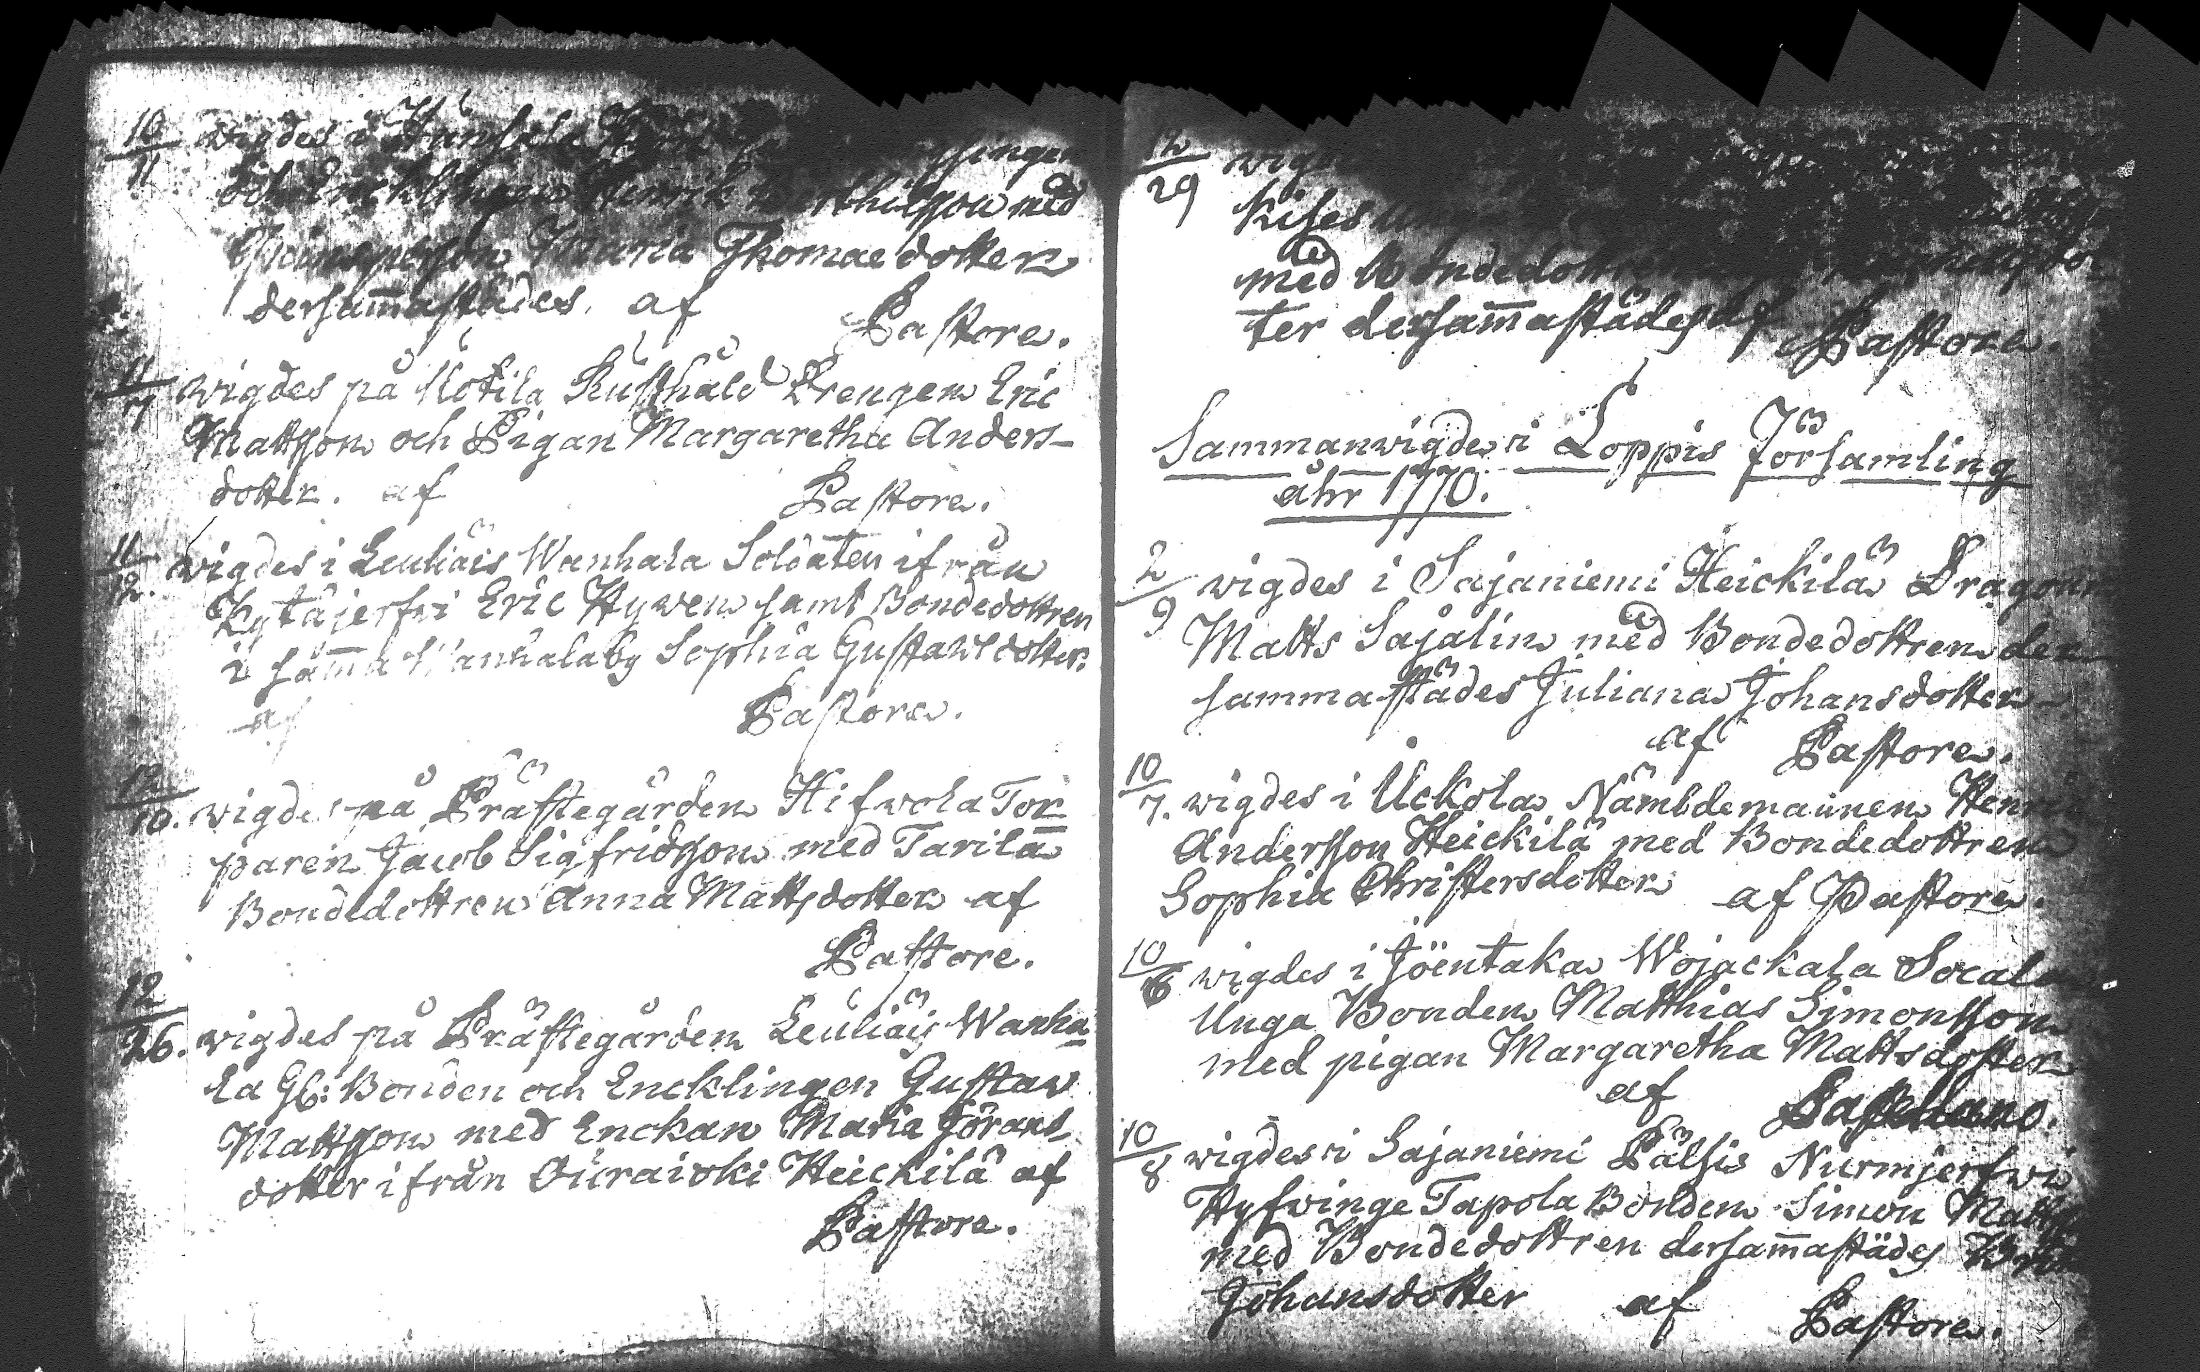 10/11 wigdes i
och Encklingen Henrik Berthilsson med
Qwinsperson Maria Thomae dotter
dersam̅astädes. af Pastore.
11/7 wigdes på Kotila Rusthåld Drengen Eric
Mattsson och Pigan Margaretha Anders-
dotter. af Pastore.
11/12. wigdes i Leuliäis Wanhala Soldaten ifrån
Kytäjerfwi Eric Hywen samt Bondedottren
i sam̅a Wanhalaby Sophia Gustafsdotter.
af Pastore.
12/10. wigdes på Prästegården Hifwola Tor-
paren Jacob Sigfridsson med Tarila
Bondedottren Anna Mattsdotter af
Pastore.
12/26. wigdes på Prästegården Leuliäis Wanha-
la Gl: Bonden och Encklingen Gustaw
Mattsson med Enckan Maria Görans
dotter ifrån Ouraioki Heickilä af
Pastore.
12/29 wigdes
med Bondedottren
ter dersam̅astädes af Pastore.
Sammanwigde i Loppis Församling
åhr 1770.
2/9 wigdes i Sajaniemi Heickilä Dragoun
Matts Sajalin med Bondedottren der
sammastädes Juliana Johansdotter
af Pastore.
10/7. wigdes i Uckola Nämbdemannen Henric
Andersson Heickilä med Bondedottren
Sophia Christersdotter af Pastore.
10/8 wigdes i Jöentaka Wojackala
Unga Bonden Matthias Simonsson
med pigan Margaretha Mattsdotter
af
10/8 wigdes i Sajaniemi Pälsis Nurmjerfwi
Hyfwinge Tapola Bonden Simon Matts
med Bondedottren dersam̅astädes
Johansdotter af Pastore.